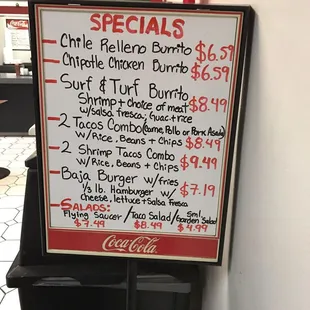 SPECIALS
- Chile Relleno Burrito $6.59
- Chipotle Chicken Burrito $6.59
- Surf & Turf Burrito
Shrimp + choice of meat $8.49
w/salsa fresca, Guac + rice
- 2 Tacos Combo (Carne, Pollo or Pork Asada)
w/Rice, Beans + Chips $8.49
- 2 Shrimp Tacos Combo
w/Rice, Beans + Chips $9.49
- Baja Burger w/fries
1/3 lb. Hamburger w/ $7.19
Cheese, lettuce + Salsa Fresca
- SALADS:
Flying Saucer / Taco Salad / Sml. Garden Salad
$7.49 $8.49 $4.99
Coca-Cola